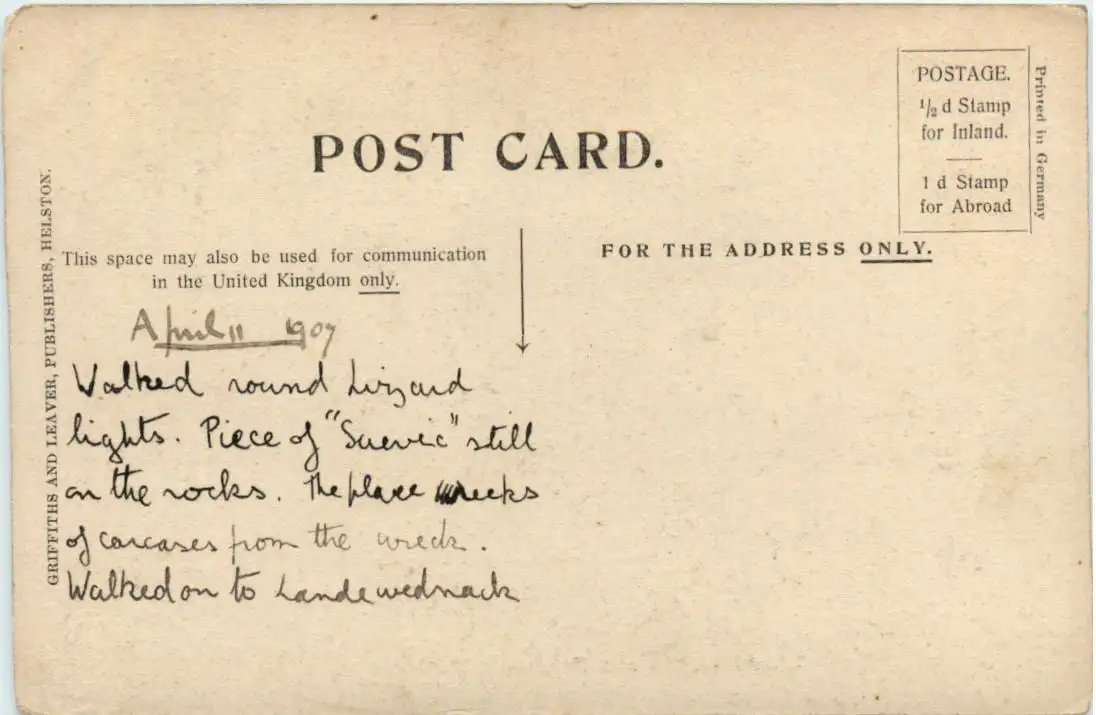 POST CARD.
POSTAGE.
1/2 d Stamp
for Inland.
1 d Stamp
for Abroad
Printed in Germany
GRIFFITHS AND LEAVER, PUBLISHERS, HELSTON.
This space may also be used for communication
in the United Kingdom only.
FOR THE ADDRESS ONLY.
April 11 1907
Walked round Lizard
lights. Piece of "Suevic" still
on the rocks. The place reeks
of carcases from the wreck.
Walked on to Landewednack